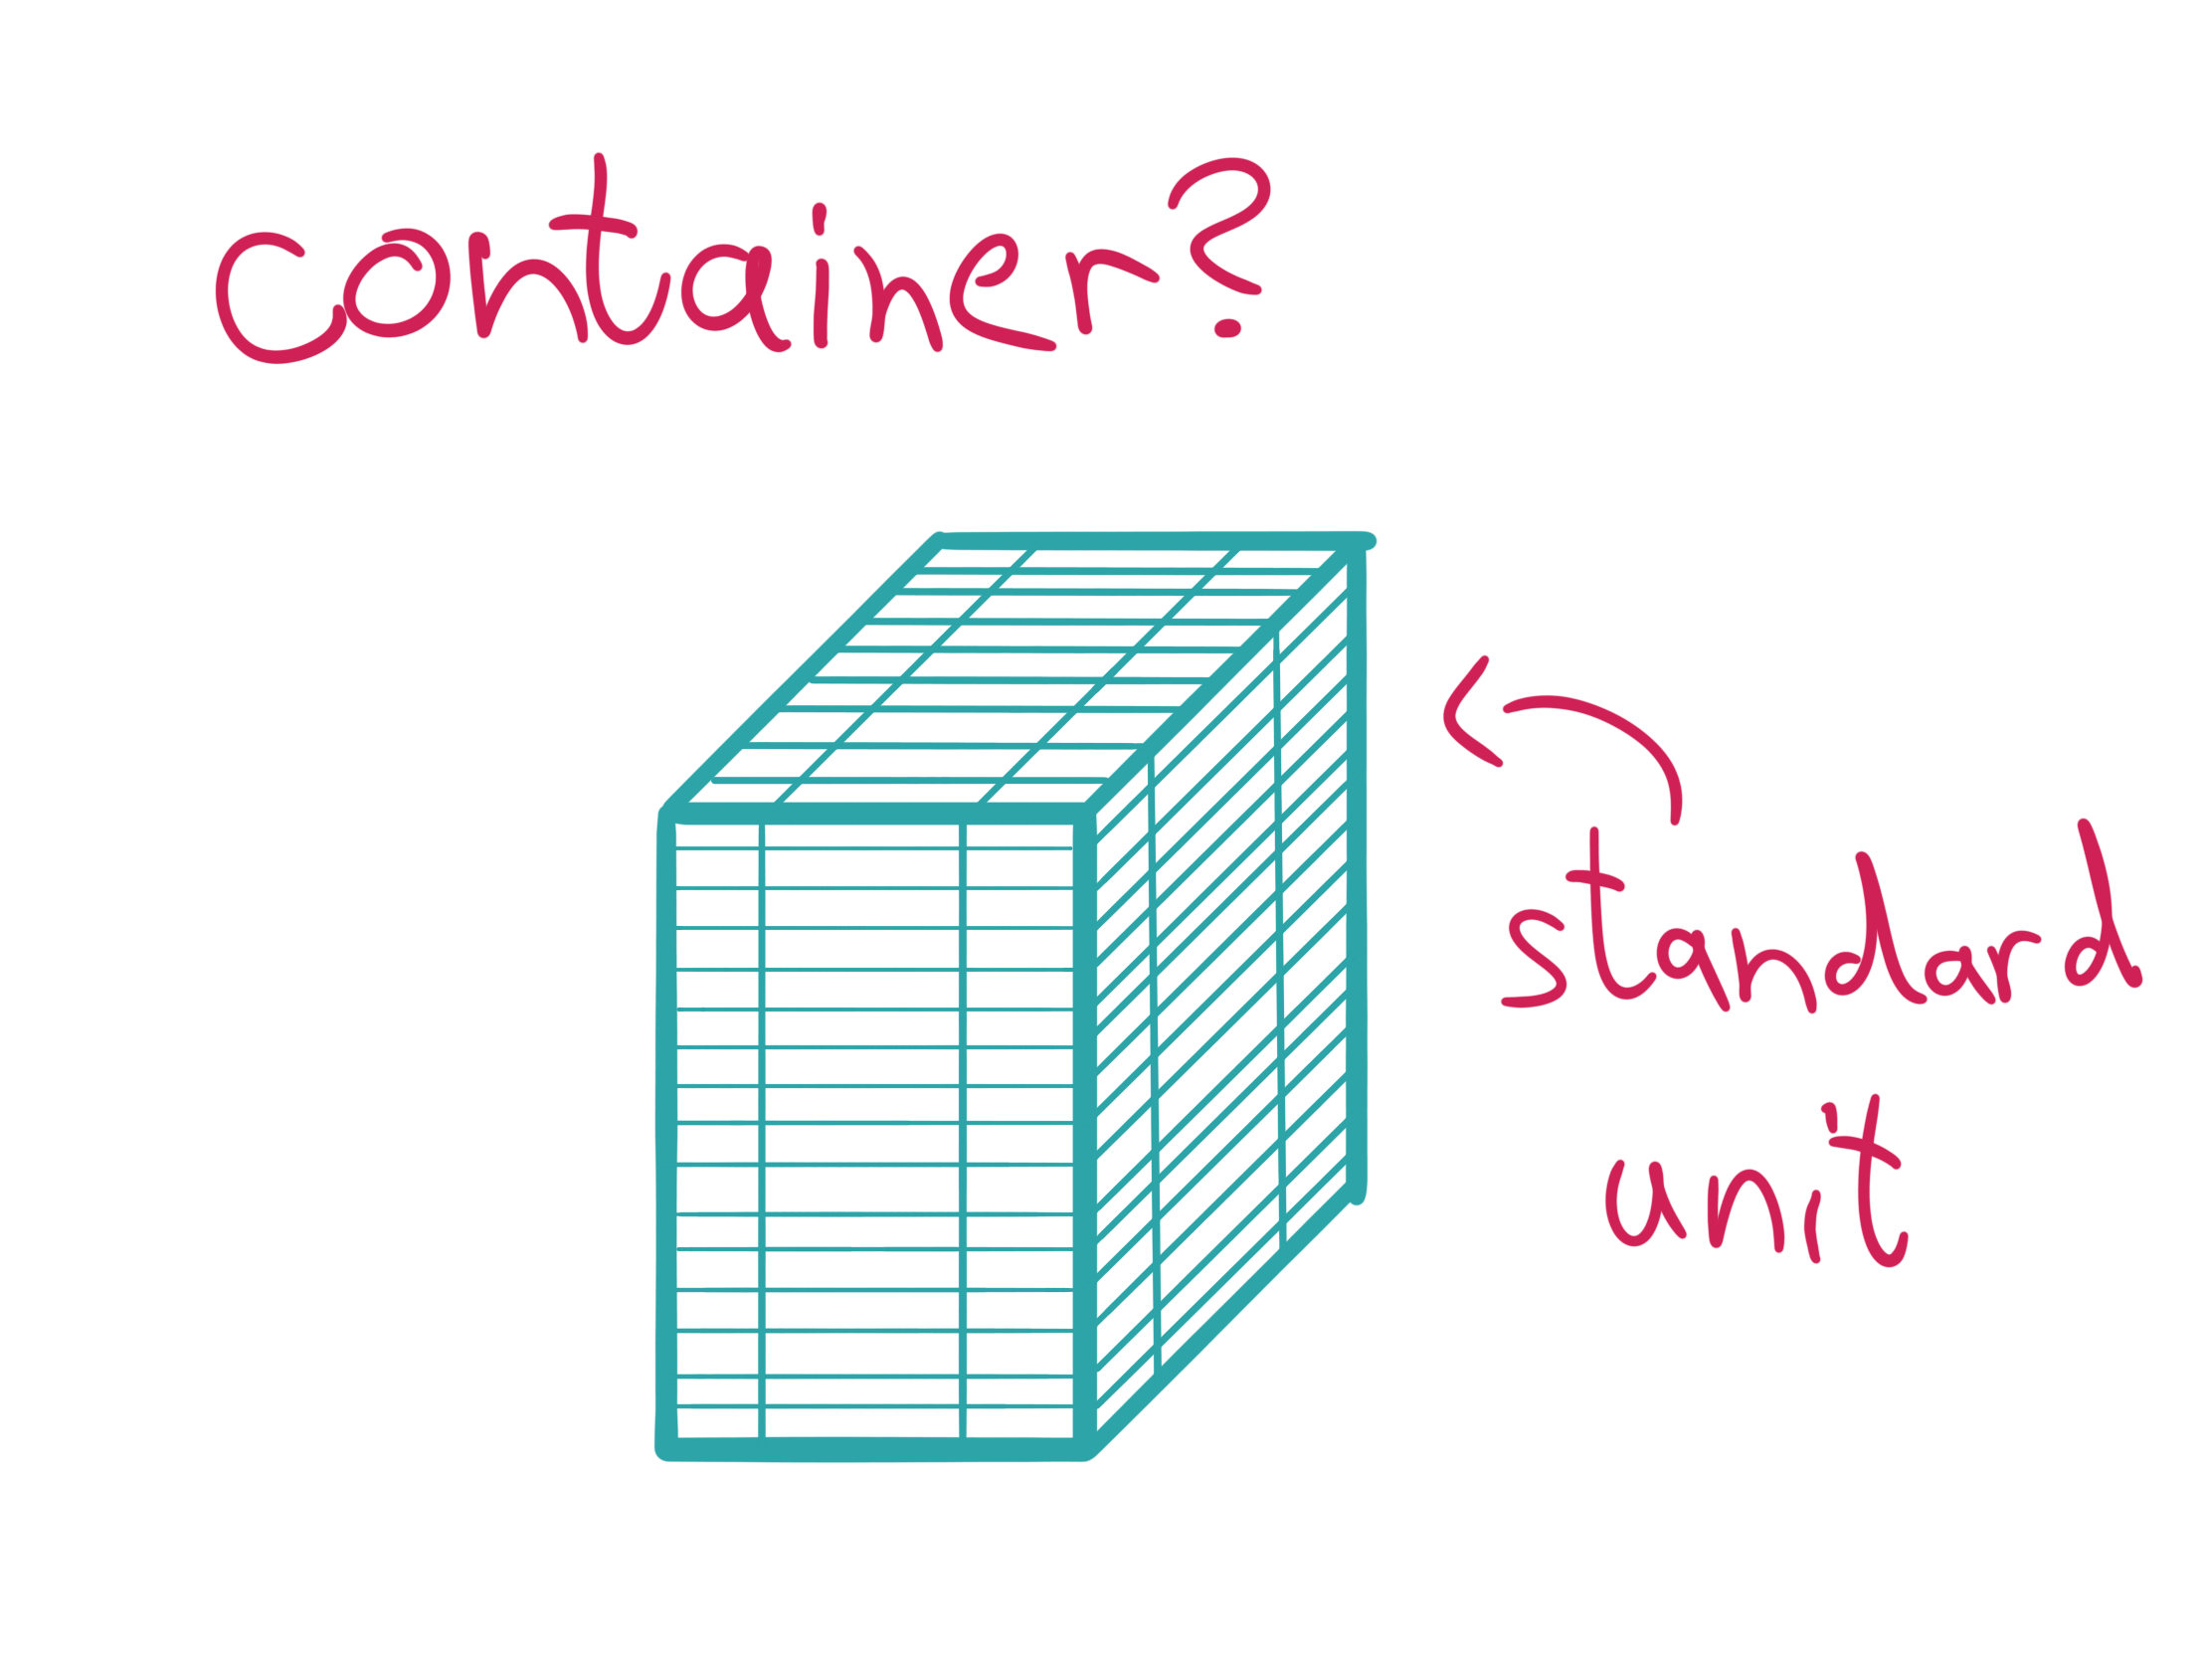 container?
standard
unit